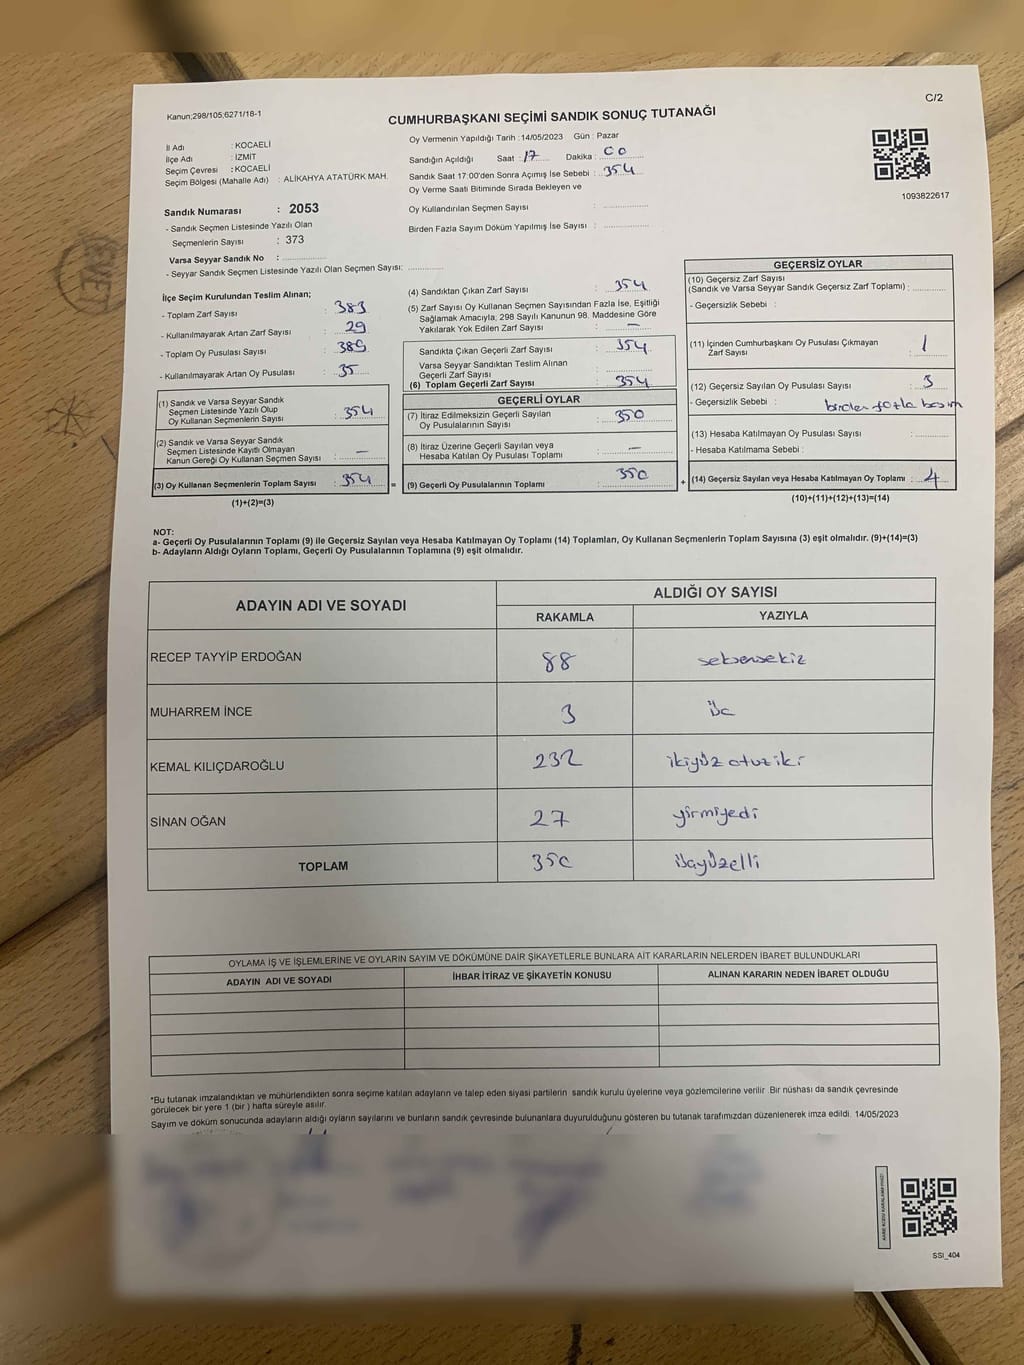 C/2
Kanun;298/105;6271/18-1
CUMHURBAŞKANI SEÇİMİ SANDIK SONUÇ TUTANAĞI
İl Adı : KOCAELİ
İlçe Adı : İZMİT
Seçim Çevresi : KOCAELİ
Seçim Bölgesi (Mahalle Adı) : ALİKAHYA ATATÜRK MAH.
Oy Vermenin Yapıldığı Tarih : 14/05/2023 Gün : Pazar
Sandığın Açıldığı Saat : 17 Dakika : 00
Sandık Saat 17:00'den Sonra Açımış İse Sebebi : 354
Oy Verme Saati Bitiminde Sırada Bekleyen ve
Oy Kullandırılan Seçmen Sayısı :
Birden Fazla Sayım Döküm Yapılmış İse Sayısı :
1093822617
Sandık Numarası : 2053
- Sandık Seçmen Listesinde Yazılı Olan
Seçmenlerin Sayısı : 373
Varsa Seyyar Sandık No :
- Seyyar Sandık Seçmen Listesinde Yazılı Olan Seçmen Sayısı:
İlçe Seçim Kurulundan Teslim Alınan;
- Toplam Zarf Sayısı : 383
- Kullanılmayarak Artan Zarf Sayısı : 29
- Toplam Oy Pusulası Sayısı : 389
- Kullanılmayarak Artan Oy Pusulası : 35
(1) Sandık ve Varsa Seyyar Sandık
Seçmen Listesinde Yazılı Olup
Oy Kullanan Seçmenlerin Sayısı : 354
(2) Sandık ve Varsa Seyyar Sandık
Seçmen Listesinde Kayıtlı Olmayan
Kanun Gereği Oy Kullanan Seçmen Sayısı : —
(3) Oy Kullanan Seçmenlerin Toplam Sayısı : 354
(1)+(2)=(3)
(4) Sandıktan Çıkan Zarf Sayısı : 354
(5) Zarf Sayısı Oy Kullanan Seçmen Sayısından Fazla İse, Eşitliği
Sağlamak Amacıyla, 298 Sayılı Kanunun 98. Maddesine Göre
Yakılarak Yok Edilen Zarf Sayısı : —
Sandıkta Çıkan Geçerli Zarf Sayısı : 354
Varsa Seyyar Sandıktan Teslim Alınan
Geçerli Zarf Sayısı :
(6) Toplam Geçerli Zarf Sayısı : 354
GEÇERLİ OYLAR
(7) İtiraz Edilmeksizin Geçerli Sayılan
Oy Pusulalarının Sayısı : 350
(8) İtiraz Üzerine Geçerli Sayılan veya
Hesaba Katılan Oy Pusulası Toplamı : —
= (9) Geçerli Oy Pusulalarının Toplamı : 350
GEÇERSİZ OYLAR
(10) Geçersiz Zarf Sayısı
(Sandık ve Varsa Seyyar Sandık Geçersiz Zarf Toplamı) :
- Geçersizlik Sebebi :
(11) İçinden Cumhurbaşkanı Oy Pusulası Çıkmayan
Zarf Sayısı : 1
(12) Geçersiz Sayılan Oy Pusulası Sayısı : 3
- Geçersizlik Sebebi : birden fazla basım
(13) Hesaba Katılmayan Oy Pusulası Sayısı :
- Hesaba Katılmama Sebebi :
+ (14) Geçersiz Sayılan veya Hesaba Katılmayan Oy Toplamı : 4
(10)+(11)+(12)+(13)=(14)
NOT:
a- Geçerli Oy Pusulalarının Toplamı (9) ile Geçersiz Sayılan veya Hesaba Katılmayan Oy Toplamı (14) Toplamları, Oy Kullanan Seçmenlerin Toplam Sayısına (3) eşit olmalıdır. (9)+(14)=(3)
b- Adayların Aldığı Oyların Toplamı, Geçerli Oy Pusulalarının Toplamına (9) eşit olmalıdır.
ADAYIN ADI VE SOYADI ALDIĞI OY SAYISI
RAKAMLA YAZIYLA
RECEP TAYYİP ERDOĞAN 88 seksensekiz
MUHARREM İNCE 3 üç
KEMAL KILIÇDAROĞLU 232 ikiyüz otuziki
SİNAN OĞAN 27 yirmiyedi
TOPLAM 350 üçyüzelli
OYLAMA İŞ VE İŞLEMLERİNE VE OYLARIN SAYIM VE DÖKÜMÜNE DAİR ŞİKAYETLERLE BUNLARA AİT KARARLARIN NELERDEN İBARET BULUNDUKLARI
ADAYIN ADI VE SOYADI İHBAR İTİRAZ VE ŞİKAYETİN KONUSU ALINAN KARARIN NEDEN İBARET OLDUĞU
*Bu tutanak imzalandıktan ve mühürlendikten sonra seçime katılan adayların ve talep eden siyasi partilerin sandık kurulu üyelerine veya gözlemcilerine verilir Bir nüshası da sandık çevresinde
görülecek bir yere 1 (bir ) hafta süreyle asılır.
Sayım ve döküm sonucunda adayların aldığı oyların sayılarını ve bunların sandık çevresinde bulunanlara duyurulduğunu gösteren bu tutanak tarafımızdan düzenlenerek imza edildi. 14/05/2023
SSI_404